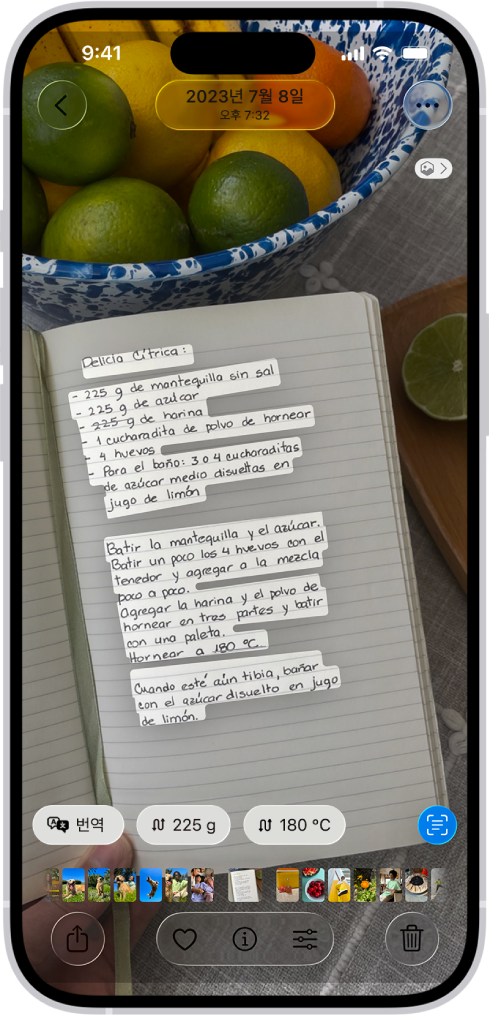 9:41
2023년 7월 8일
오후 7:32
Delicia Cítrica:
- 225 g de mantequilla sin sal
- 225 g de azúcar
- 225 g de harina
- 1 cucharadita de polvo de hornear
- 4 huevos
- Para el baño: 3 o 4 cucharaditas
de azúcar medio disueltas en
jugo de limón
Batir la mantequilla y el azúcar.
Batir un poco los 4 huevos con el
tenedor y agregar a la mezcla
poco a poco.
Agregar la harina y el polvo de
hornear en tres partes y batir
con una paleta.
Hornear a 180 °C.
Cuando esté aún tibia, bañar
con el azúcar disuelto en jugo
de limón.
번역
225 g
180 °C